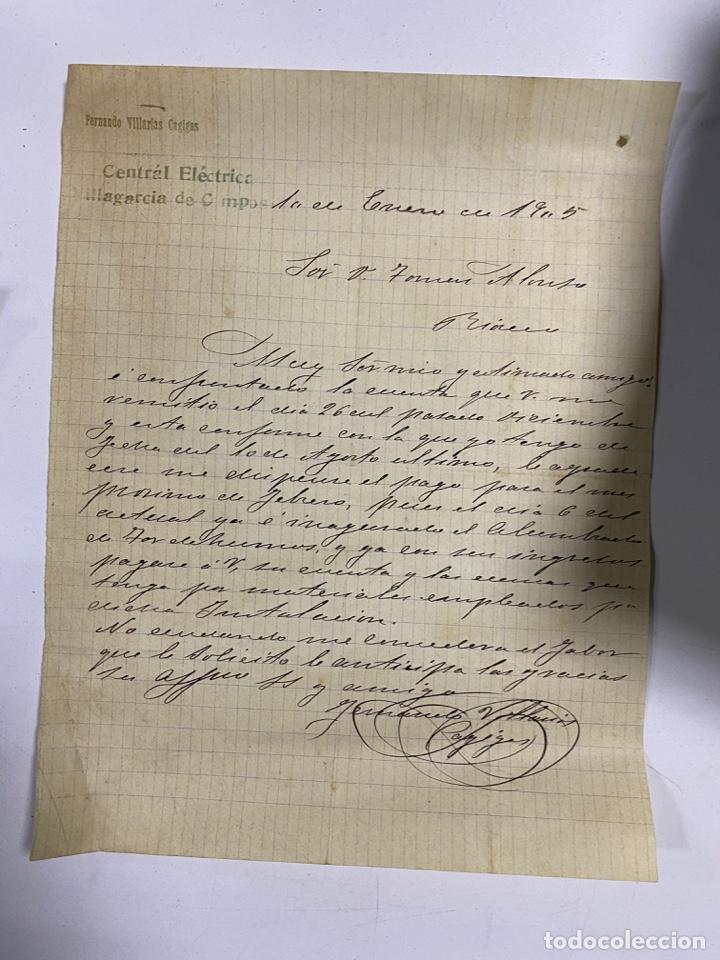 Fernando Villarias Cagigas
Centrál Eléctrica
illagarcia de C mpos
10 de Enero de 1905
Sor D. Tomas Alonso
Rioseco
Muy Sor mio y estimado amigo:
é confrontado la cuenta que V. me
remitio el dia 26 del pasado Diciembre
y esta conforme con la que yo tengo de
fecha del 10 de Agosto ultimo, le agrade
cere me dispense el pago para el mes
procsimo de Febrero, pues el dia 6 del
actual ya é inagurado el Alumbrado
de Tordehumos, y ya con sus ingresos
pagare á V. su cuenta y las demas que
tengo por materiales empleados pa
dicha Instalacion.
No dudando me concedera el fabor
que le solicito le anticipa las gracias
su affmo SS y amigo
Fernando Villarias
Cagigas
todocoleccion.net